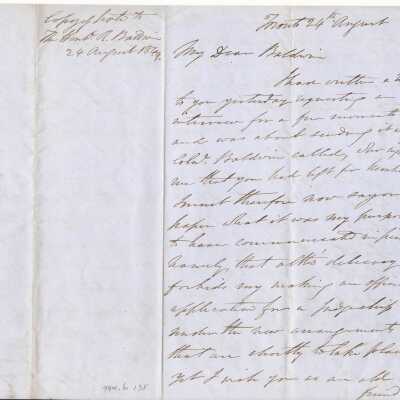 Copy of note to
The Honble. R. Baldwin
24 August 1849.
Toronto 24th August
My Dear Baldwin
I had written a
to you yesterday requesting an
interview for a few moments
and was about sending it
Colo. Baldwin called,
me that you had left for
I must therefore now say on
paper what it was my purpose
to have communicated
namely, that altho' delicacy
forbids my making an
application for a judgeship
under the new arrangements
that are shortly to take place
yet I wish you as an old
friend
994.6.138